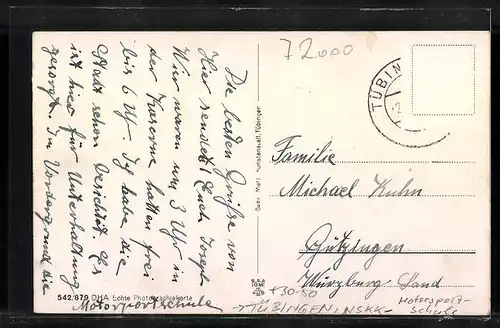 Die besten Grüße von
Hier sendet Euch Joseph
Wir waren um 3 Uhr in
der Kaserne hatten frei
bis 6 Uhr. Ich habe die
Stadt schon besichtigt. Es
ist hier für Unterhaltung
gesorgt. Im Vordergrund die
Motorsportschule
542/879 DHA Echte Photographiekarte
Gebr. Metz Kunstanstalt, Tübingen
72000
TÜBIN
Familie
Michael Kuhn
Gützingen
Würzburg Land
+30-50
→TÜBINGEN: NSKK-
Motorsport-
schule